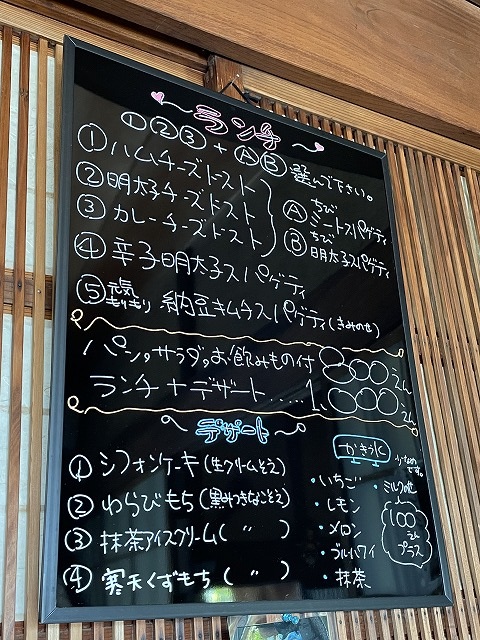 ランチ
①②③+ⒶⒷ 選んで下さい。
①ハムチーズトースト
②明太子チーズトースト
③カレーチーズトースト
Ⓐちびミートスパゲティ
Ⓑちび明太子スパゲティ
④辛子明太子スパゲティ
⑤元気もりもり 納豆キムチスパゲティ(きみのせ)
パン,サラダ,お飲みもの付 800えん
ランチ+デザート.....1,000えん
デザート
①シフォンケーキ(生クリームそえ)
②わらびもち(黒みつきなこそえ)
③抹茶アイスクリーム( 〃 )
④寒天くずもち( 〃 )
かき氷
です。
・いちご
・レモン
・メロン
・ブルーハワイ
・抹茶
・ミルクは
100えんプラス